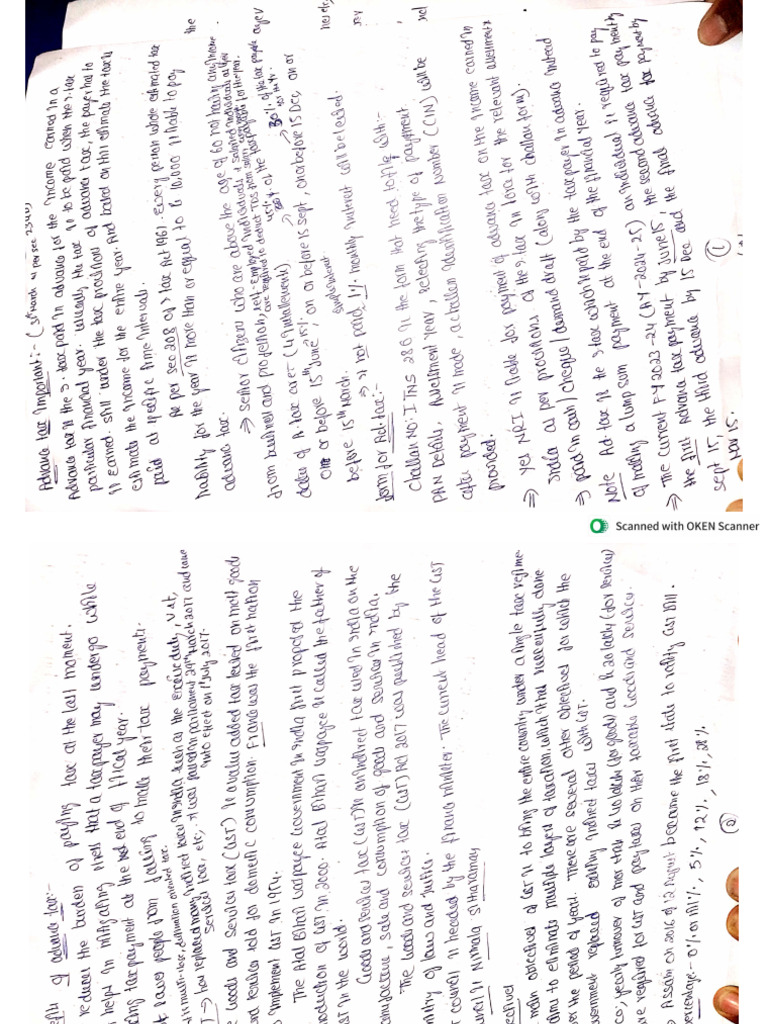 Advance tax important:- (
Advance tax is the I. tax paid in advance for the income earned in a
particular financial year. Usually the tax is to be paid when the I. tax
is earned. Still under the tax provision of advance tax, the payer has to
estimate the income for the entire year. And based on this estimate the tax is
paid at specific time intervals.
As per sec 208 of I tax Act 1961. Every person whose estimated tax
liability for the year is more than or equal to ₹ 10,000 is liable to pay the
advance tax.
⇒ senior citizens who are above the age of 60 not having any income
from business and profession
dates of A. tax are:- (4 installements)
on or before 15th June, on or before 15 sept, on or before 15 Dec, on or
before 15th March.
⇒ if not paid, 1% monthly interest will be levied.
simple interest
form for Ad. tax:-
Challan No: ITNS 286 is the form that need to file with:-
PAN Details, Assessment year, selecting the type of payment
after payment is made, a challan Identification Number (CIN) will be
provided.
⇒ yes NRI is liable for payment of advance tax on the income earned in
India as per provisions of the I tax in force for the relevant assessment
⇒ paid in cash/cheque/demand draft (along with challan form).
Note Ad. tax is the I tax which is paid by the tax payer in advance instead
of making a lump sum payment at the end of the financial year.
⇒ The current FY 2023-24 (AY-2024-25) an individual is required to pay
the first Advance tax payment by June 15, the second advance tax payment by
sept 15, the third advance by 15 Dec and the final advance tax payment by
Mar 15.
1
Scanned with OKEN Scanner
of advance tax:-
reduces the burden of paying tax at the last moment.
helps in mitigating stress that a taxpayer may undergo while
tax payment at the end of fiscal year.
saves people from failing to make their tax payments.
is multi-tax, destination oriented tax.
⇒ has replaced many indirect taxes in India such as the excise duty, VAT,
service tax, etc. It was passed in parliament 29th March 2017 and came
into effect on 1st July 2017.
Goods and service tax (GST) is a value added tax levied on most goods
and services sold for domestic consumption. France was the first nation
implement GST in 1954.
The Atal Bihari Vajpayee Government in India first proposed the
introduction of GST in 2000. Atal Bihari Vajpayee is called the father of
GST in the world.
Goods and service tax (GST) is an indirect tax used in India on the
manufacture, sale and consumption of goods and services in India.
The Goods and service tax (GST) Act 2017 was published by the
ministry of law and justice.
council is headed by the finance minister. The current head of the GST
council is Nirmala Sitharaman
objective
main objectives of GST is to bring the entire country under a single tax regime
aims to eliminate multiple layers of taxation, which it has successfully done
over the period of years. There are several other objectives for which the
government replaced existing indirect taxes with GST.
yearly turnover of more than ₹ 40 lakhs (for goods) and ₹ 20 lakhs (for services)
are required for GST and pay taxes on their taxable Goods and services.
⇒ Assam on 2016 of 12 August became the first state to ratify GST Bill.
percentage:- 0% or nil %, 5%, 12%, 18%, 28%
2